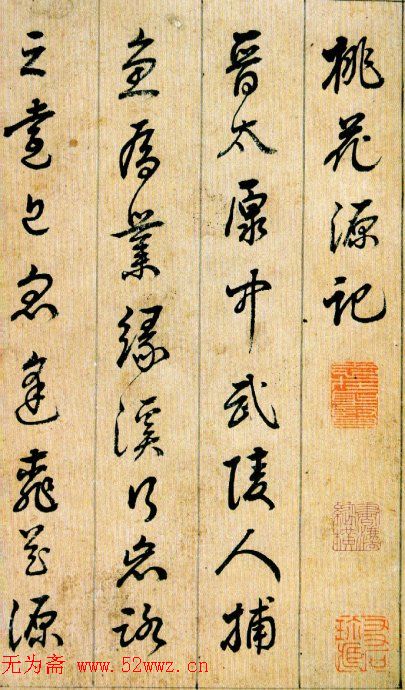 桃花源記
晉太原中武陵人捕
魚為業緣溪行忘路
之遠近忽逢桃花源
无为斋 www.52wwz.cn